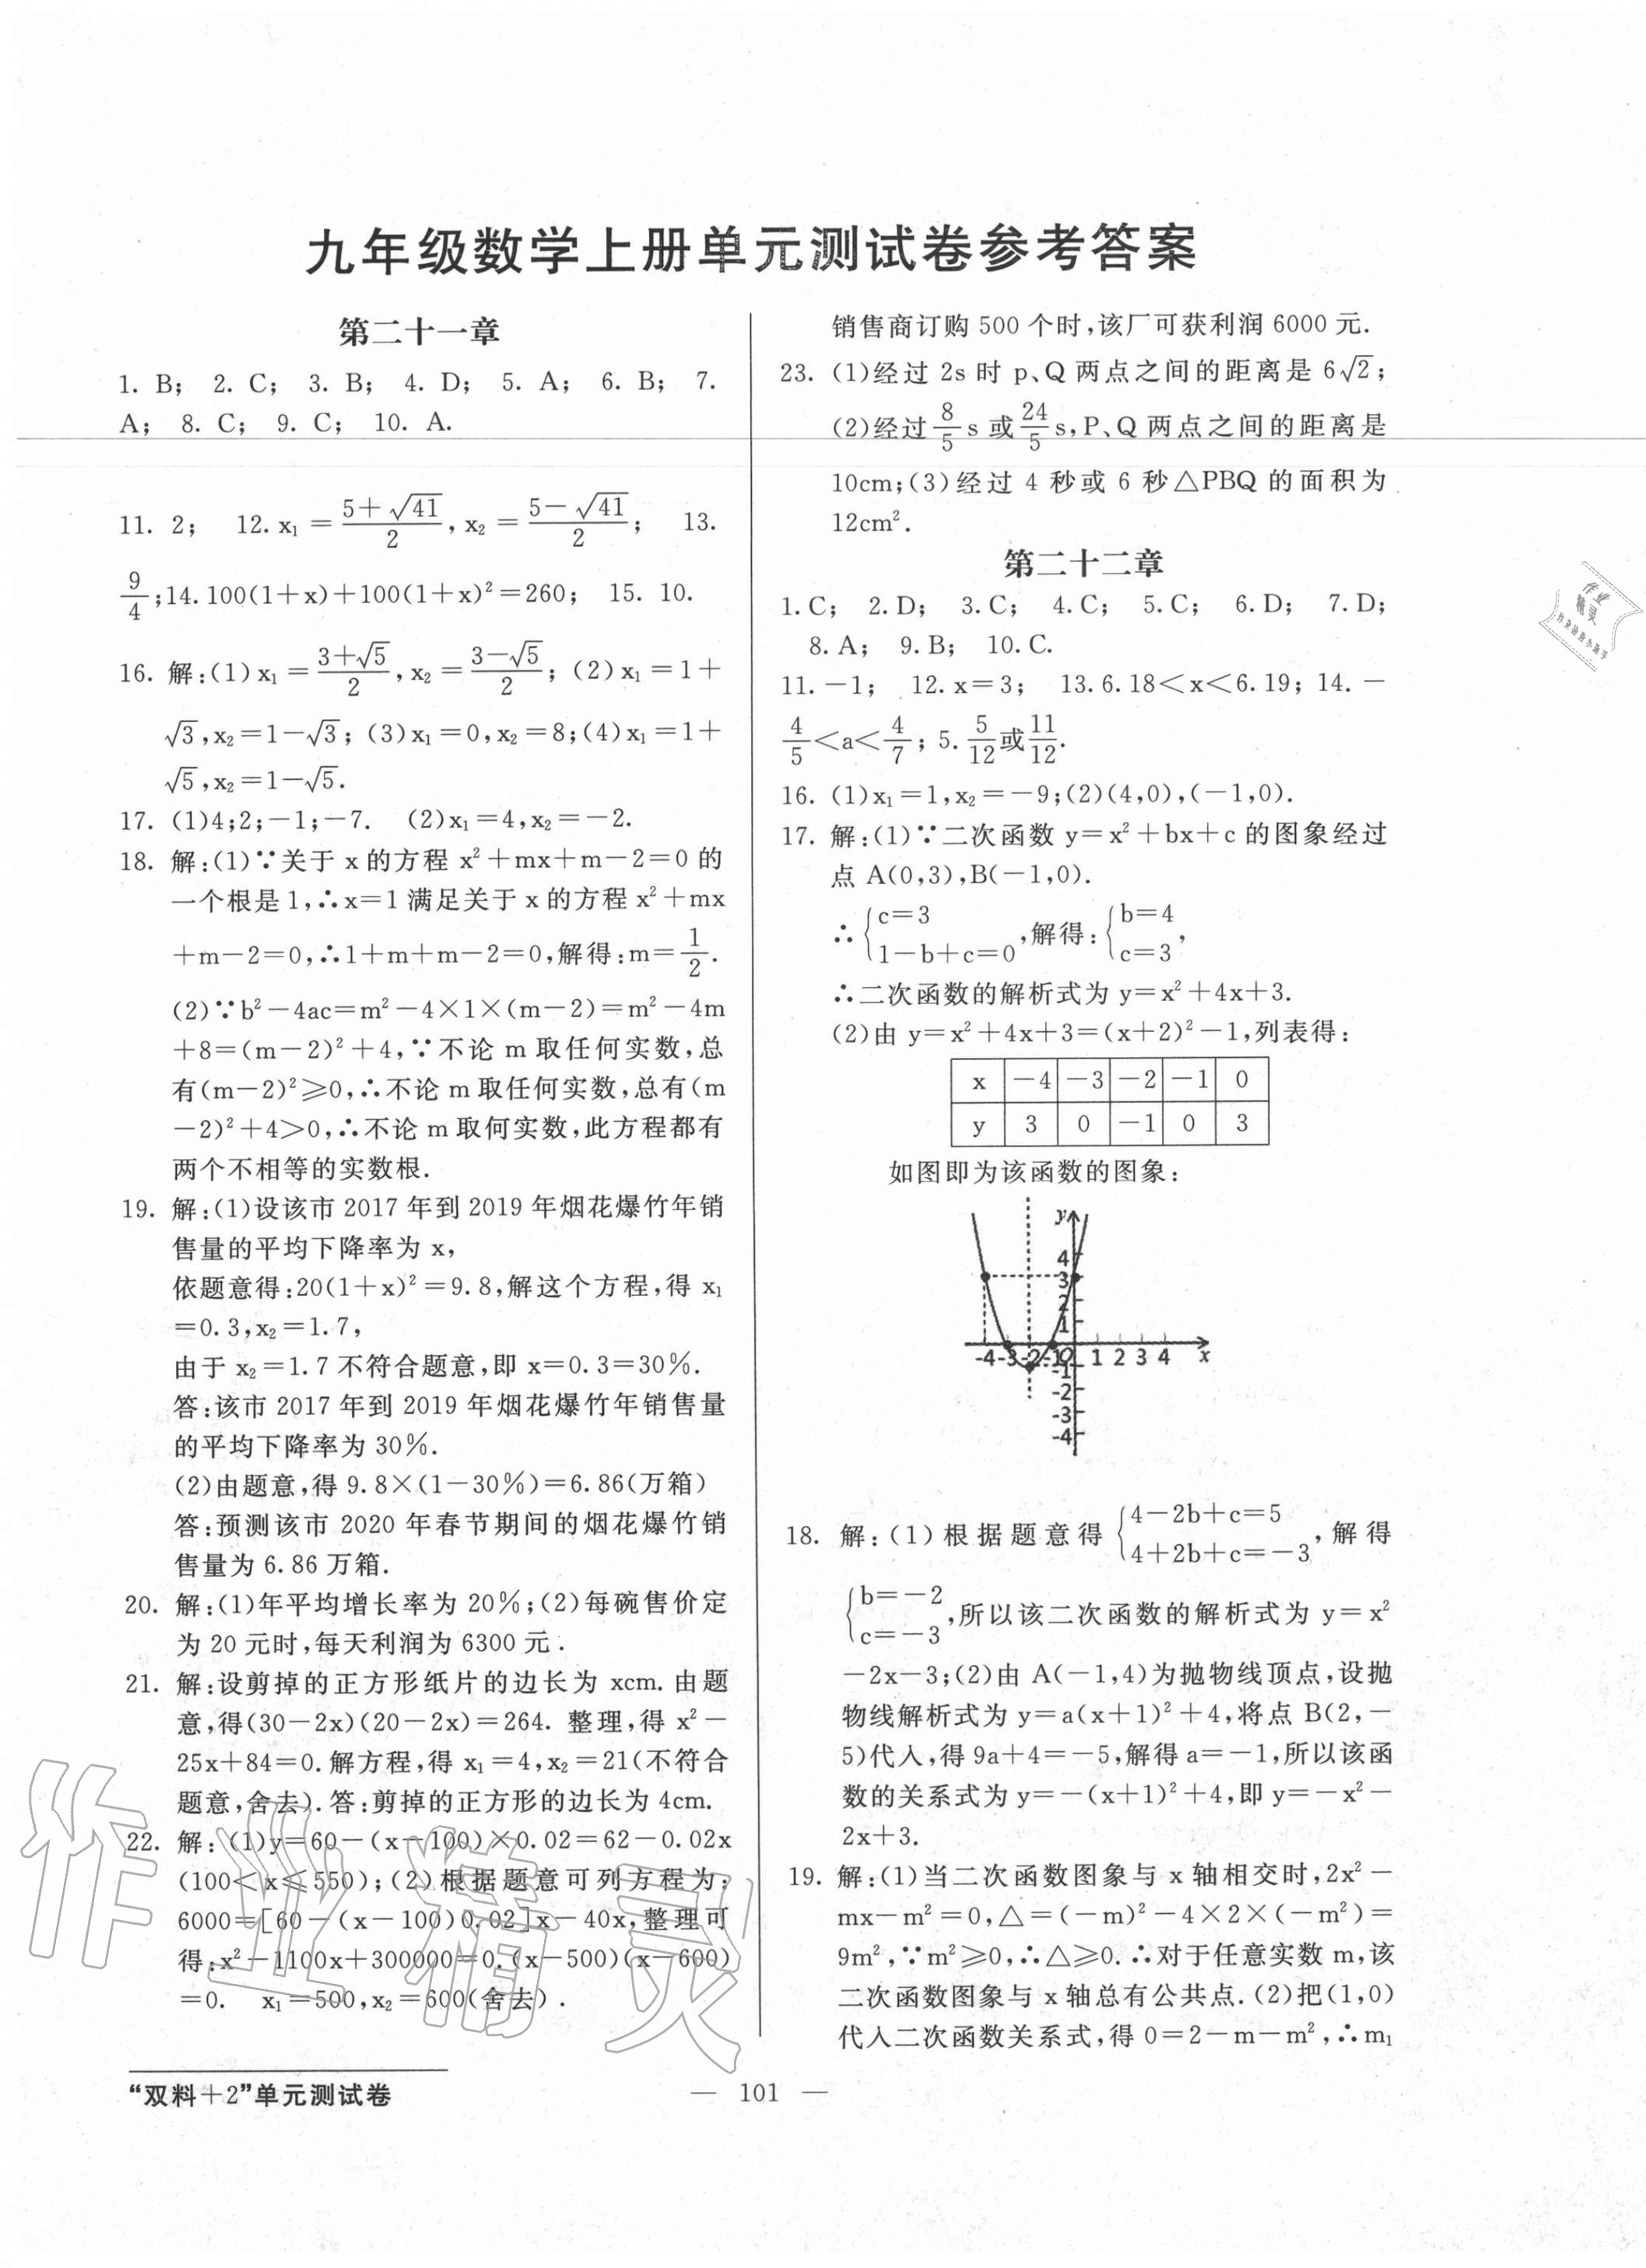 九年级数学上册单元测试卷参考答案
第二十一章
1. B; 2. C; 3. B; 4. D; 5. A; 6. B; 7.
A; 8. C; 9. C; 10. A.
11. 2; 12. x₁ = (5+√41)/2, x₂ = (5-√41)/2; 13.
9/4;14.100(1+x)+100(1+x)²=260; 15. 10.
16. 解:(1)x₁ = (3+√5)/2, x₂ = (3-√5)/2; (2)x₁=1+
√3,x₂=1-√3; (3)x₁=0,x₂=8;(4)x₁=1+
√5,x₂=1-√5.
17. (1)4;2;-1;-7. (2)x₁=4,x₂=-2.
18. 解:(1)∵关于 x 的方程 x²+mx+m-2=0 的
一个根是 1,∴x=1 满足关于 x 的方程 x²+mx
+m-2=0,∴1+m+m-2=0,解得:m=1/2.
(2)∵b²-4ac=m²-4×1×(m-2)=m²-4m
+8=(m-2)²+4,∵不论 m 取任何实数,总
有(m-2)²≥0,∴不论 m 取任何实数,总有(m
-2)²+4>0,∴不论 m 取何实数,此方程都有
两个不相等的实数根.
19. 解:(1)设该市 2017 年到 2019 年烟花爆竹年销
售量的平均下降率为 x,
依题意得:20(1+x)²=9.8,解这个方程,得 x₁
=0.3,x₂=1.7,
由于 x₂=1.7 不符合题意,即 x=0.3=30%.
答:该市 2017 年到 2019 年烟花爆竹年销售量
的平均下降率为 30%.
(2)由题意,得 9.8×(1-30%)=6.86(万箱)
答:预测该市 2020 年春节期间的烟花爆竹销
售量为 6.86 万箱.
20. 解:(1)年平均增长率为 20%;(2)每碗售价定
为 20 元时,每天利润为 6300 元.
21. 解:设剪掉的正方形纸片的边长为 xcm. 由题
意,得(30-2x)(20-2x)=264. 整理,得 x²-
25x+84=0. 解方程,得 x₁=4,x₂=21(不符合
题意,舍去).答:剪掉的正方形的边长为 4cm.
22. 解:(1)y=60-(x-100)×0.02=62-0.02x
(100<x≤550);(2)根据题意可列方程为:
6000=[60-(x-100)0.02]x-40x,整理可
得:x²-1100x+300000=0.(x-500)(x-600)
=0. x₁=500,x₂=600(舍去).
销售商订购 500 个时,该厂可获利润 6000 元.
23. (1)经过 2s 时 p、Q 两点之间的距离是 6√2;
(2)经过 8/5 s 或 24/5 s,P、Q 两点之间的距离是
10cm;(3)经过 4 秒或 6 秒△PBQ 的面积为
12cm².
第二十二章
1.C; 2.D; 3.C; 4.C; 5.C; 6.D; 7.D;
8.A; 9.B; 10.C.
11.-1; 12.x=3; 13.6.18<x<6.19; 14.-
4/5<a<4/7; 5. 5/12或11/12.
16. (1)x₁=1,x₂=-9;(2)(4,0),(-1,0).
17. 解:(1)∵二次函数 y=x²+bx+c 的图象经过
点 A(0,3),B(-1,0).
∴{c=3 1-b+c=0,解得:{b=4 c=3,
∴二次函数的解析式为 y=x²+4x+3.
(2)由 y=x²+4x+3=(x+2)²-1,列表得:
x -4 -3 -2 -1 0
y 3 0 -1 0 3
如图即为该函数的图象:
y
4
3
2
1
-4 -3 -2 -1 O 1 2 3 4 x
-1
-2
-3
-4
18. 解:(1)根据题意得{4-2b+c=5 4+2b+c=-3,解得
{b=-2 c=-3,所以该二次函数的解析式为 y=x²
-2x-3;(2)由 A(-1,4)为抛物线顶点,设抛
物线解析式为 y=a(x+1)²+4,将点 B(2,-
5)代入,得 9a+4=-5,解得 a=-1,所以该函
数的关系式为 y=-(x+1)²+4,即 y=-x²-
2x+3.
19. 解:(1)当二次函数图象与 x 轴相交时,2x²-
mx-m²=0,△=(-m)²-4×2×(-m²)=
9m²,∵m²≥0,∴△≥0.∴对于任意实数 m,该
二次函数图象与 x 轴总有公共点.(2)把(1,0)
代入二次函数关系式,得 0=2-m-m²,∴m₁
“双料+2”单元测试卷
— 101 —
作业精灵
作业
精灵